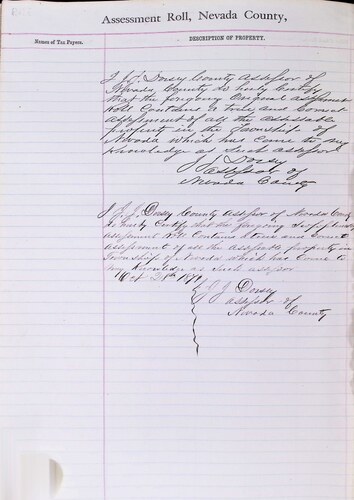 Assessment Roll, Nevada County,
Names of Tax Payers.
DESCRIPTION OF PROPERTY.
I J. J. Dorsey County Assessor of
Nevada County do hereby Certify
that the foregoing Original assessment
Roll Contains a true and Correct
assessment of all the assessable
property in the Township of
Nevada which has Come to my
Knowledge as Such assessor
J J Dorsey
assessor of
Nevada County
I J. J. Dorsey County Assessor of Nevada County
do hereby Certify that the foregoing
assessment Roll Contains true and Correct
Assessment of all the Assessable property in
Township of Nevada which has Come to
my Knowledge as Such assessor
Oct 28th
J J Dorsey
assessor of
Nevada County